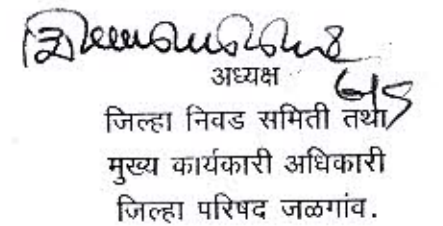 अध्यक्ष
6/5
जिल्हा निवड समिती तथा
मुख्य कार्यकारी अधिकारी
जिल्हा परिषद जळगांव.